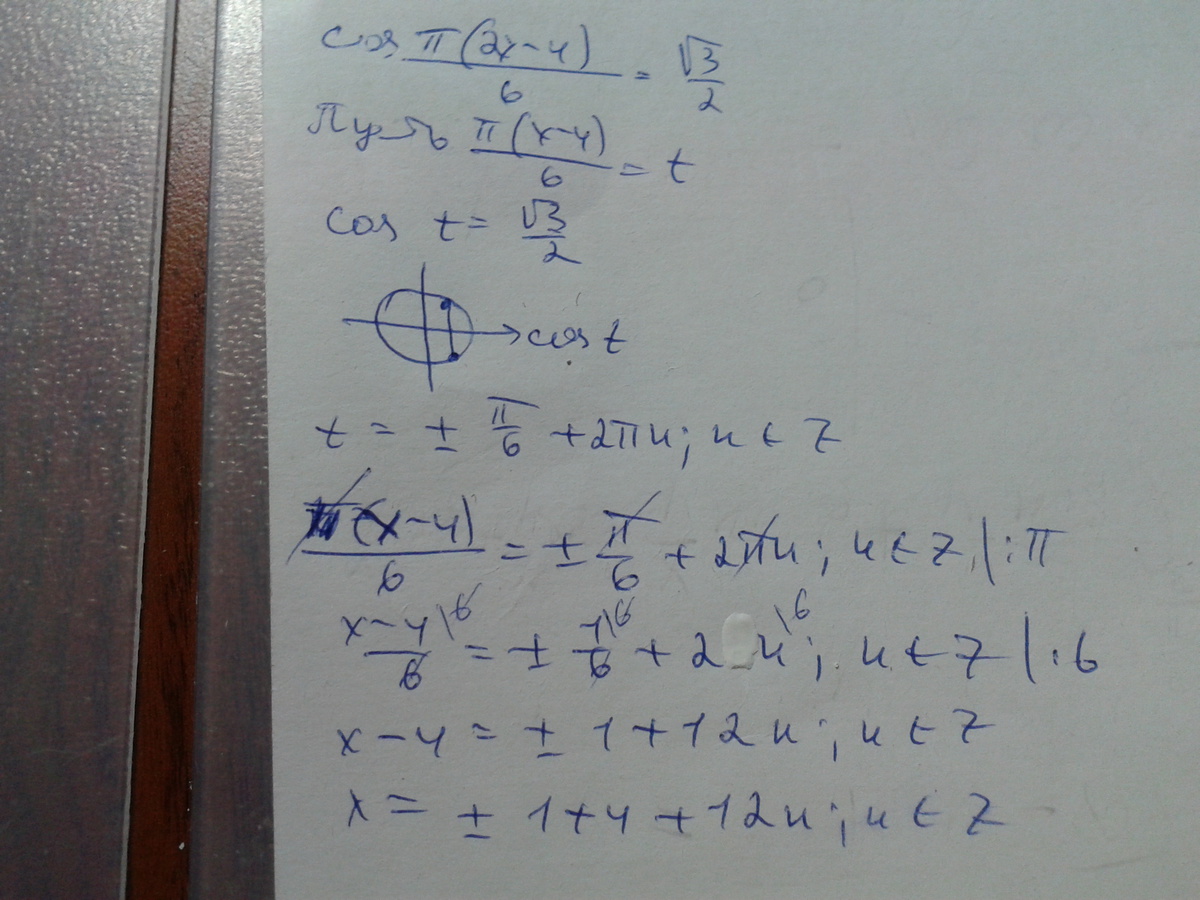 cos π(2x-4)/6 = √3/2
Пусть π(x-4)/6 = t
cos t = √3/2
cos t
t = ± π/6 + 2πn; n ∈ Z
π(x-4)/6 = ± π/6 + 2πn; n ∈ Z |:π
x-4\6/6 = ± 1\6/6 + 2 n\6; n ∈ Z |·6
x-4 = ± 1 + 12n; n ∈ Z
x = ± 1 + 4 + 12n; n ∈ Z